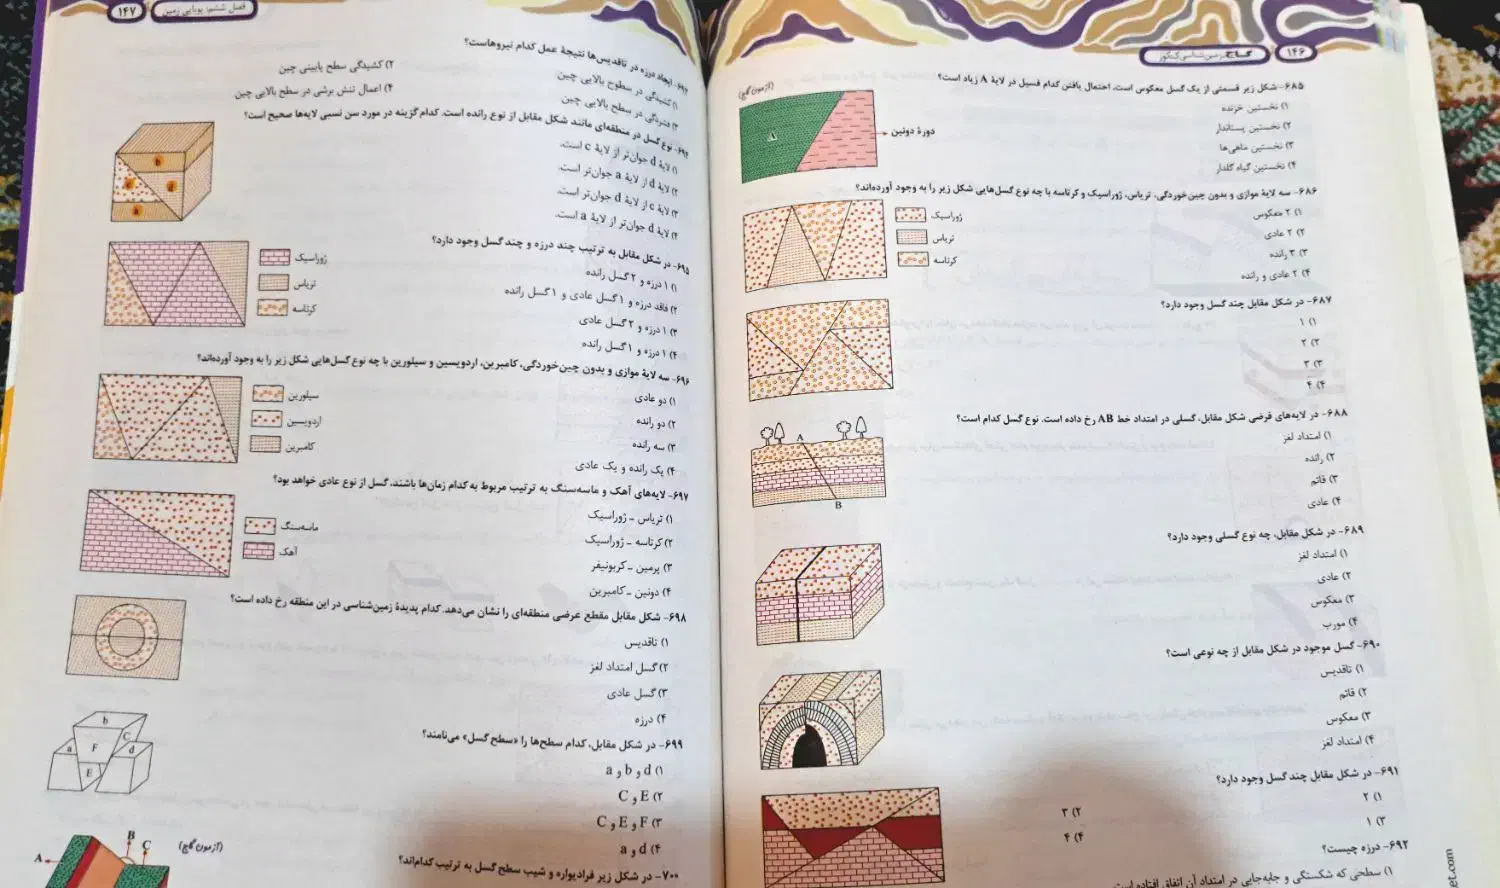 ۱۴۶
گاج
۶۸۵- شکل زیر قسمتی از یک گسل معکوس است. احتمال یافتن کدام فسیل در لایهٔ A زیاد است؟
(آزمون گاج)
۱) نخستین خزنده
۲) نخستین پستاندار
۳) نخستین ماهی‌ها
۴) نخستین گیاه گلدار
A
دورهٔ دونین
۶۸۶- سه لایهٔ موازی و بدون چین‌خوردگی، تریاس، ژوراسیک و کرتاسه با چه نوع گسل‌هایی شکل زیر را به وجود آورده‌اند؟
۱) ۲ معکوس
۲) ۲ عادی
۳) ۳ رانده
۴) ۲ عادی و رانده
ژوراسیک
تریاس
کرتاسه
۶۸۷- در شکل مقابل چند گسل وجود دارد؟
۱) ۱
۲) ۲
۳) ۳
۴) ۴
۶۸۸- در لایه‌های فرضی شکل مقابل، گسلی در امتداد خط AB رخ داده است. نوع گسل کدام است؟
۱) امتداد لغز
۲) رانده
۳) قائم
۴) عادی
A
B
۶۸۹- در شکل مقابل، چه نوع گسلی وجود دارد؟
۱) امتداد لغز
۲) عادی
۳) معکوس
۴) مورب
۶۹۰- گسل موجود در شکل مقابل از چه نوعی است؟
۱) تاقدیس
۲) قائم
۳) معکوس
۴) امتداد لغز
۶۹۱- در شکل مقابل چند گسل وجود دارد؟
۱) ۲
۲) ۳
۳) ۱
۴) ۴
۶۹۲- درزه چیست؟
۱) سطحی که شکستگی و جابه‌جایی در امتداد آن اتفاق افتاده است.
فصل ششم: پویایی زمین
۱۴۷
۶۹۳- ایجاد درزه در تاقدیس‌ها نتیجهٔ عمل کدام نیروهاست؟
۱) کشیدگی در سطوح بالایی چین
۲) کشیدگی سطح پایینی چین
۳) فشردگی در سطح بالایی چین
۴) اعمال تنش برشی در سطح بالایی چین
۶۹۴- نوع گسل در منطقه‌ای مانند شکل مقابل از نوع رانده است. کدام گزینه در مورد سن نسبی لایه‌ها صحیح است؟
۱) لایهٔ d جوان‌تر از لایهٔ c است.
۲) لایهٔ d از لایهٔ a جوان‌تر است.
۳) لایهٔ c از لایهٔ d جوان‌تر است.
۴) لایهٔ d جوان‌تر از لایهٔ a است.
b
c
d
a
۶۹۵- در شکل مقابل به ترتیب چند درزه و چند گسل وجود دارد؟
۱) ۱ درزه و ۲ گسل رانده
۲) فاقد درزه و ۱ گسل عادی و ۱ گسل رانده
۳) ۱ درزه و ۲ گسل عادی
۴) ۱ درزه و ۱ گسل رانده
ژوراسیک
تریاس
کرتاسه
۶۹۶- سه لایهٔ موازی و بدون چین‌خوردگی، کامبرین، اردویسین و سیلورین با چه نوع گسل‌هایی شکل زیر را به وجود آورده‌اند؟
۱) دو عادی
۲) دو رانده
۳) سه رانده
۴) یک رانده و یک عادی
سیلورین
اردویسین
کامبرین
۶۹۷- لایه‌های آهک و ماسه‌سنگ به ترتیب مربوط به کدام زمان‌ها باشند، گسل از نوع عادی خواهد بود؟
۱) تریاس ـ ژوراسیک
۲) کرتاسه ـ ژوراسیک
۳) پرمین ـ کربونیفر
۴) دونین ـ کامبرین
ماسه‌سنگ
آهک
۶۹۸- شکل مقابل مقطع عرضی منطقه‌ای را نشان می‌دهد. کدام پدیدهٔ زمین‌شناسی در این منطقه رخ داده است؟
۱) تاقدیس
۲) گسل امتداد لغز
۳) گسل عادی
۴) درزه
۶۹۹- در شکل مقابل، کدام سطح‌ها را «سطح گسل» می‌نامند؟
۱) d و b و a
۲) E و C
۳) F و E و C
۴) d و a
b
C
F
a
d
E
۷۰۰- در شکل زیر فرادیواره و شیب سطح گسل به ترتیب کدام‌اند؟
(آزمون گاج)
A
B
C